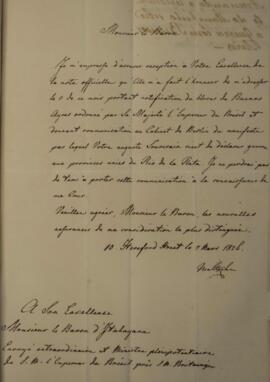 Monsieur le Baron
Je m'empresse d'accuser reception à Votre Excellence de
la note officielle qu'Elle m'a fait l'honneur de m'adresser
le 5 de ce mois portant notification du blocus de Buenos
Ayres ordonné par Sa Majesté l'Empereur du Brésil et
donnant communication au Cabinet de Berlin du manifeste
par lequel Votre auguste Souverain vient de déclarer guerre
aux provinces unies du Rio de la Plata. Je ne perdrai pas
de tems à porter cette communication à la connaissance de
ma Cour.
Veuillez agréer, Monsieur le Baron, les nouvelles
assurances de ma considération la plus distinguée.
10 Hereford Street le Mars 1826.
Maltzahn
A Son Excellence
Monsieur le Baron d'Itabayana
Envoyé extraordinaire et Ministre plénipotentiaire
de S. M. l'Empereur du Brésil près S. M. Britannique